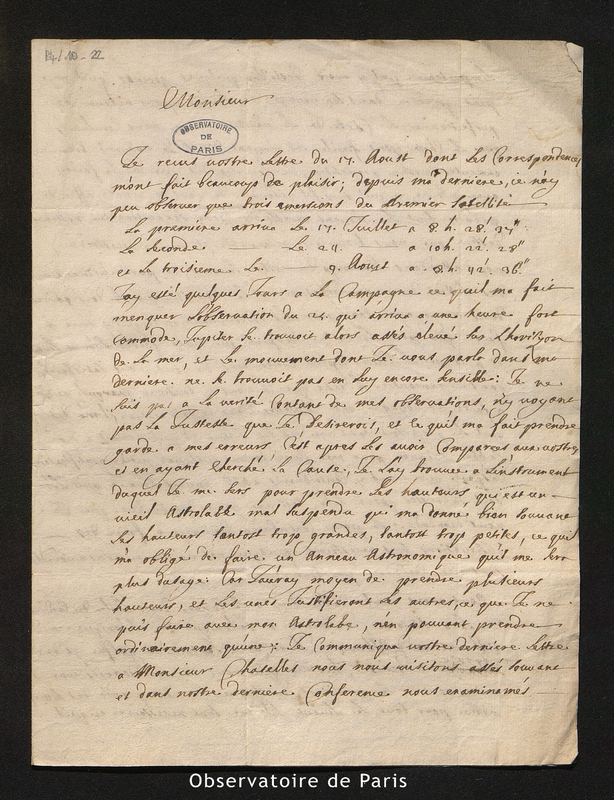 B4/10-22
Monsieur
OBSERVATOIRE
DE
PARIS
Je receus vostre Lettre du 17. Aoust dont Les Correspondences
m'ont fait beaucoup de plaisir; depuis ma derniere, je n'ay
peu observer que trois emersions du premier satellite
La premiere arriva Le 17. Juillet a 8 h. 28'. 37".
La seconde Le 24. a 10h. 22'. 28"
et La troisieme Le 9. Aoust a 8h. 42'. 36"
J'ay esté quelques Jours a La Campagne ce qu'il ma fait
menquer L'observation du 25. qui arriva a une heure fort
commode, Jupiter se trouvoit alors assés elevé sur L'horison
de La mer, et Le mouvement dont Je vous parle dans ma
derniere ne se trouvoit pas en Luy encore sensible: Je ne
suis pas a La verité Contant de mes observations, n'y voyant
pas La Justesse que Je Desirerois, et ce qu'il ma fait prendre
garde a mes erreurs C'est apres Les avoir Comparées aux vostres
et en ayant cherché La Cause, Je L'ay trouvee a L'instrument
duquel Je me sers pour prendre Les hauteurs qui est un
vieil Astrolabe mal suspendu qui ma donné bien souvant
Les hauteurs tantost trop grandes, tantost trop petites, ce qu'il
m'a obligé de faire un Anneau Astronomique qu'il me sera
plus dusage: Car J'auray moyen de prendre plusieurs
hauteurs, et Les unes Justifieront Les autres, ce que Je ne
puis faire avec mon Astrolabe, n'en pouvant prendre
ordinairement qu'une: Je Communiqua vostre derniere Lettre
a Monsieur Chatelles nous nous visitons assés souvant
et dans nostre derniere Conference nous examinamés
Observatoire de Paris